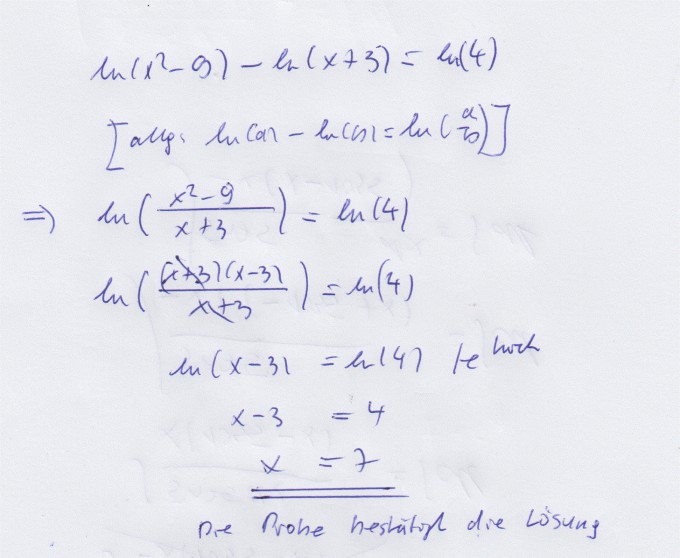 ln(x²-9) - ln(x+3) = ln(4)
[allg: ln(a) - ln(b) = ln(a/b)]
⇒ ln((x²-9)/(x+3)) = ln(4)
ln((x+3)(x-3)/(x+3)) = ln(4)
ln(x-3) = ln(4) |e hoch
x-3 = 4
x = 7
Die Probe bestätigt die Lösung